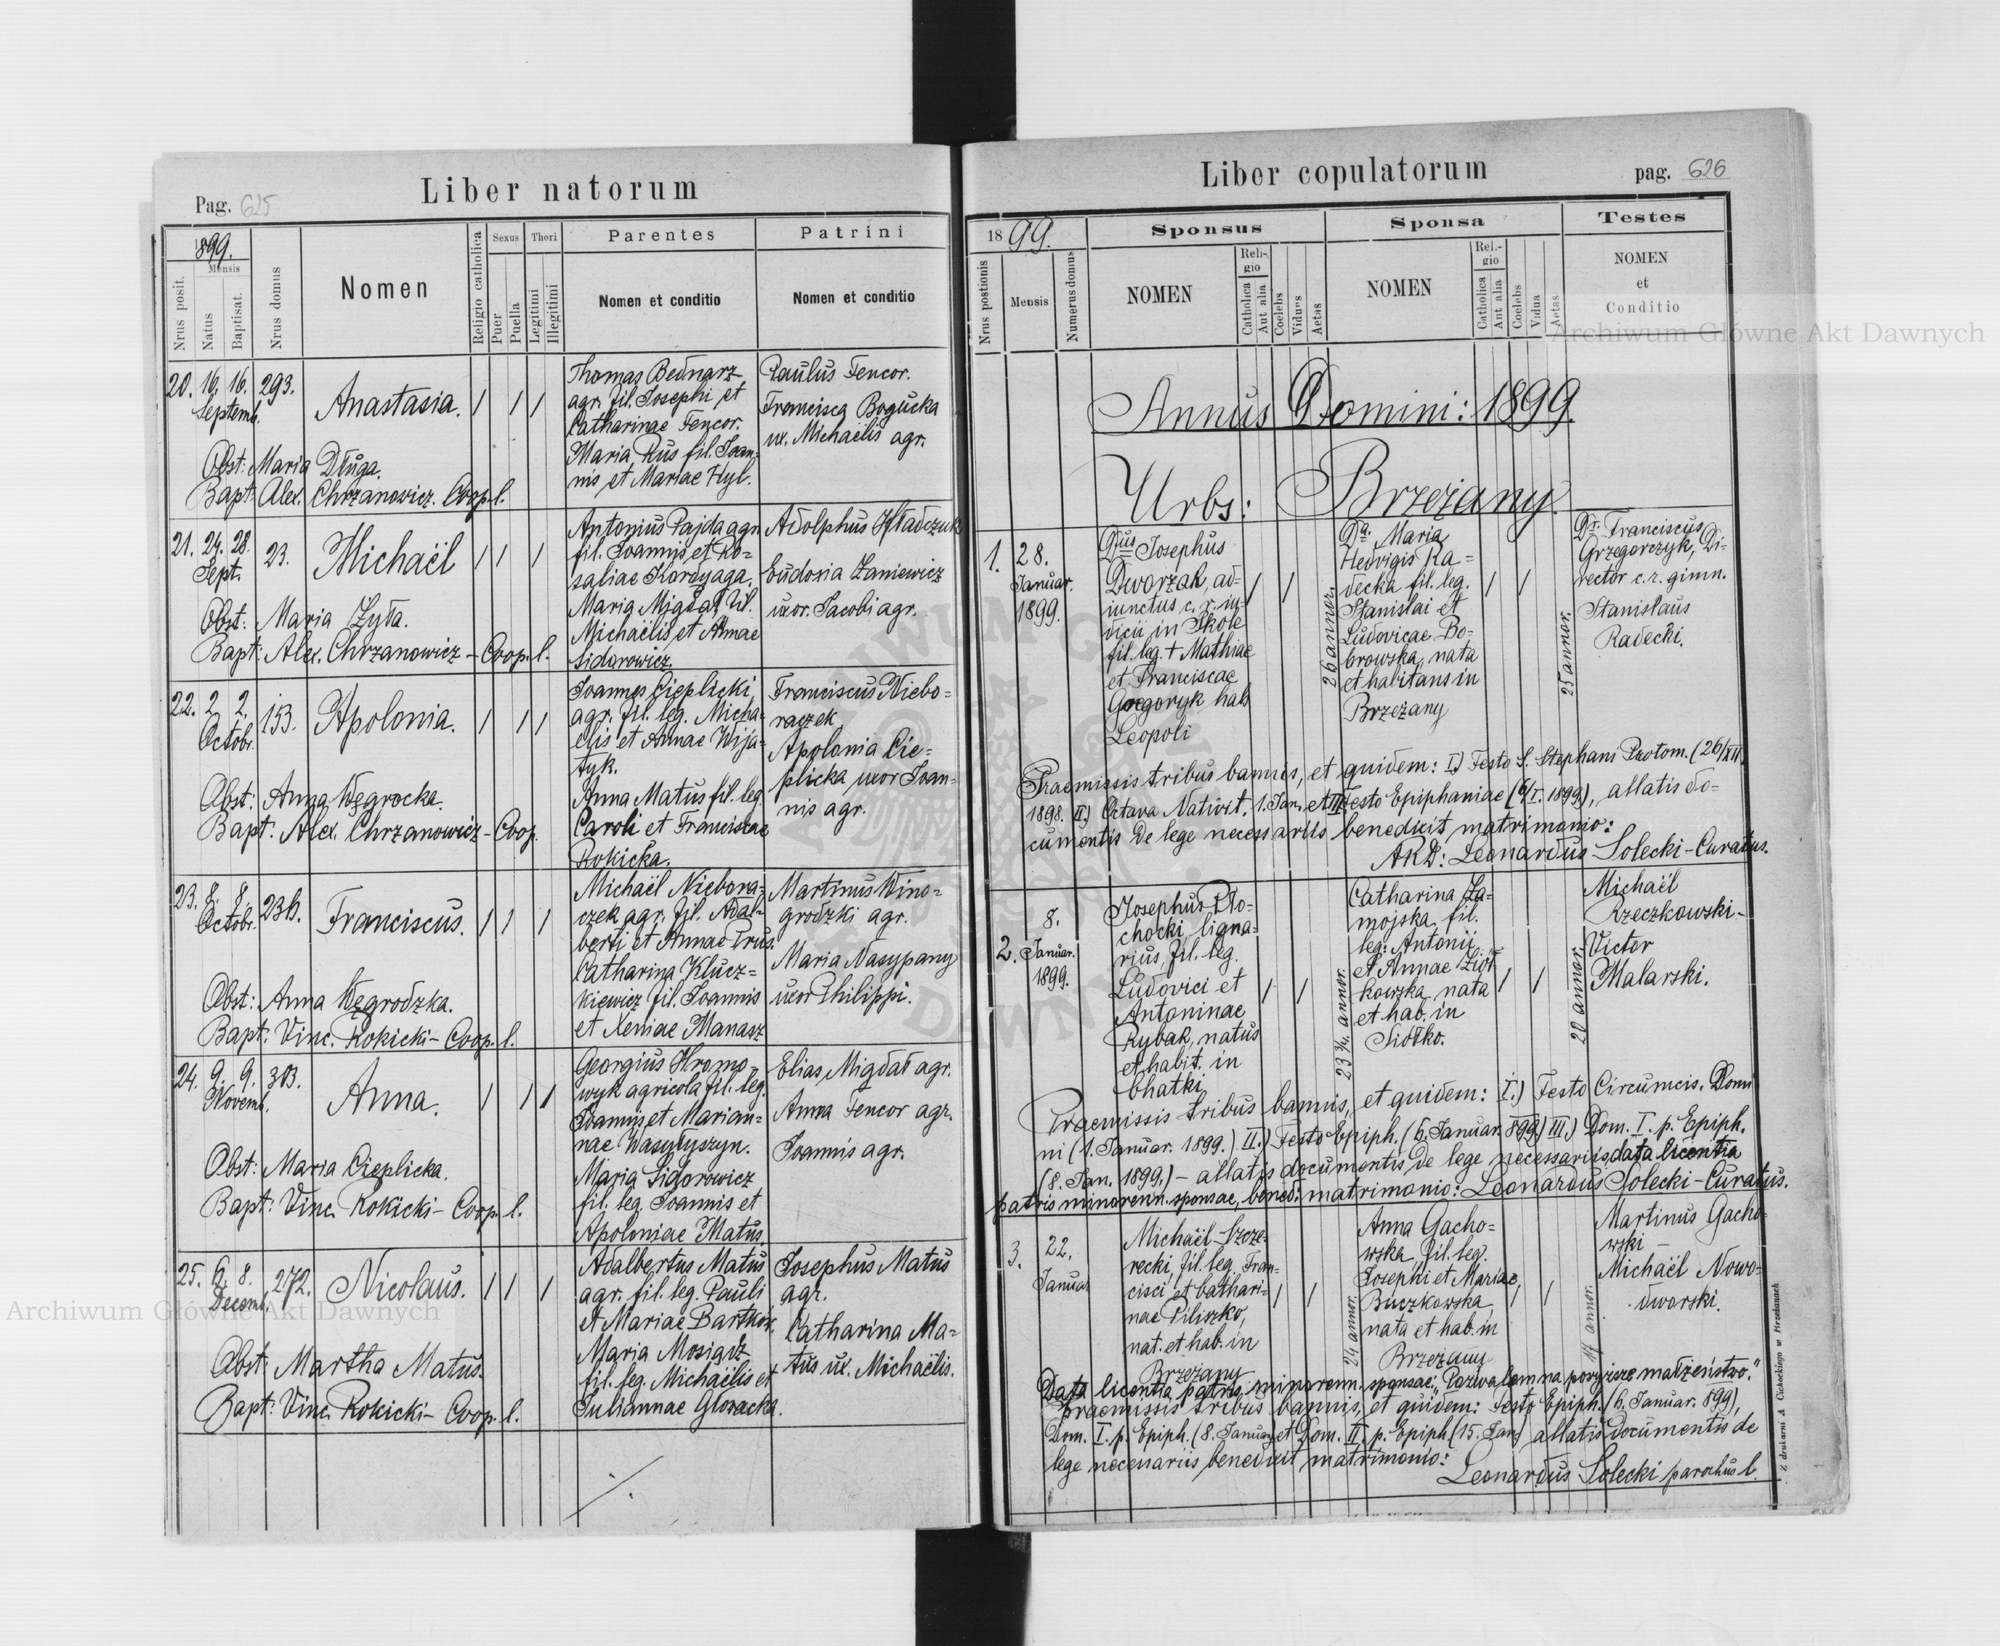 Pag. 625
Liber natorum
1899.
Nrus posit.
Mensis
Natus
Baptisat.
Nrus domus
Nomen
Religio catholica
Sexus
Puer
Puella
Thori
Legitimi
Illegitimi
Parentes
Nomen et conditio
Patrini
Nomen et conditio
20. 16. 16. 293.
Septemb.
Anastasia. / / /
Thomas Bednarz
agr. fil. Josephi et
Catharinae Fencor.
Maria Kus fil. Joan-
nis et Mariae Hyl.
Paulus Fencor.
Francisca Bogucka
ux. Michaëlis agr.
Obst: Maria Długa.
Bapt: Alex. Chrzanowicz. Coop. l.
21. 24. 28. 23.
Sept.
Michaël / / /
Antonius Pajda agr.
fil. Joannis et Ro-
saliae Kordyaga.
Maria Migdał fil.
Michaëlis et Annae
Sidorowicz.
Adolphus Hładczuk
Eudoxia Zaniewicz
uxor. Jacobi agr.
Obst: Maria Żyła.
Bapt: Alex. Chrzanowicz - Coop. l.
22. 2. 2. 153.
Octobr.
Apolonia. / / /
Joannes Cieplicki
agr. fil. leg. Micha-
elis et Annae Wija-
tyk.
Anna Matus fil. leg.
Caroli et Franciscae
Rokicka.
Franciscus Niebo-
raczek
Apolonia Cie-
plicka uxor Joan-
nis agr.
Obst: Anna Węgrocka.
Bapt: Alex. Chrzanowicz - Coop.
23. 8. 8. 236.
Octobr.
Franciscus. / / /
Michaël Niebora-
czek agr. fil. Adal-
berti et Annae Prus.
Catharina Klucz-
kiewicz fil. Joannis
et Xeniae Manasz
Martinus Wino-
grodzki agr.
Maria Nasypany
uxor Philippi.
Obst: Anna Węgrodzka.
Bapt: Vinc. Rokicki - Coop. l.
24. 9. 9. 303.
Novemb.
Anna. / / /
Georgius Hromo-
wyk agricola fil. leg.
Joannis et Marian-
nae Wasyłyszyn.
Maria Sidorowicz
fil. leg. Joannis et
Apoloniae Matus.
Elias Migdał agr.
Anna Fencor agr.
Joannis agr.
Obst: Maria Cieplicka.
Bapt: Vinc. Rokicki - Coop. l.
25. 6. 8. 272.
Decemb.
Nicolaus. / / /
Adalbertus Matus
agr. fil. leg. Pauli
et Mariae Bartków.
Maria Mosiądz
fil. leg. Michaëlis et
Juliannae Głowacka.
Josephus Matus
agr.
Catharina Ma-
tus ux. Michaëlis.
Obst: Martha Matus.
Bapt: Vinc. Rokicki - Coop. l.
Liber copulatorum
pag. 626
1899.
Nrus postionis
Mensis
Numerus domus
Sponsus
NOMEN
Reli-gio
Catholica
Aut alia
Coelebs
Viduus
Aetas
Sponsa
NOMEN
Reli-gio
Catholica
Aut alia
Coelebs
Vidua
Aetas
Testes
NOMEN
et
Conditio
Annus Domini: 1899.
Urbs: Brzeżany.
1. 28.
Januar.
1899.
Dnus Josephus
Dworzak, ad-
iunctus c. r. iu-
dicii in Skole
fil. leg. + Mathiae
et Franciscae
Gregoryk hab
Leopoli
/ /
26 annor.
Dna Maria
Hedvigis Ra-
decka fil. leg.
Stanislai et
Ludovicae Bo-
browska, nata
et habitans in
Brzeżany
/ /
25 annor.
Dr. Franciscus
Grzegorczyk, Di-
rector c. r. gimn.
Stanislaus
Radecki.
Praemissis tribus bannis, et quidem: I.) Festo S. Stephani Protom. (26/XII
1898. II.) Octava Nativit. 1. Jan. et III Festo Epiphaniae (6/I. 1899), allatis do-
cumentis de lege necessariis benedixit matrimonio:
ARD: Leonardus Solecki - Curatus.
2. 8.
Januar.
1899.
Josephus Pło-
chocki, ligna-
rius, fil. leg.
Ludovici et
Antoninae
Rybak, natus
et habit. in
Chatki
/ /
23 3/4. annor.
Catharina Za-
mojska fil.
leg: Antonii
et Annae Ziół-
kowska nata
et hab. in
Siółko.
/ /
20 annor.
Michaël
Rzeczkowski -
Victor
Malarski.
Praemissis tribus bannis, et quidem: I.) Festo Circumcis. Domi
ni (1. Januar. 1899.) II.) Festo Epiph. (6. Januar. 899) III.) Dom. I. p. Epiph.
(8. Jan. 1899.) - allatis documentis de lege necessariis, data licentia
patris minorenn. sponsae, bened: matrimonio: Leonardus Solecki - Curatus.
3. 22.
Januar
Michaël Szcze-
recki, fil. leg. Fran-
cisci et Cathari-
nae Piliszko,
nat. et hab. in
Brzeżany
/ /
24 annor.
Anna Gacho-
wska, fil. leg.
Josephi et Mariae
Buczkowska,
nata et hab. in
Brzeżany
/ /
annor.
Martinus Gacho-
wski -
Michaël Nowo-
dworski.
Data licentia patris minorenn. sponsae: "Pozwalam na powyższe małżeństwo."
Praemissis tribus bannis, et quidem: Festo Epiph. (6. Januar. 899),
Dom. I. p. Epiph. (8. Januar) et Dom. II. p. Epiph. (15. Jan) allatis documentis de
lege necessariis, benedixit matrimonio:
Leonardus Solecki parochus l.
Z drukarni A. Cichockiego w Brzeżanach
Archiwum Główne Akt Dawnych
Archiwum Główne Akt Dawnych